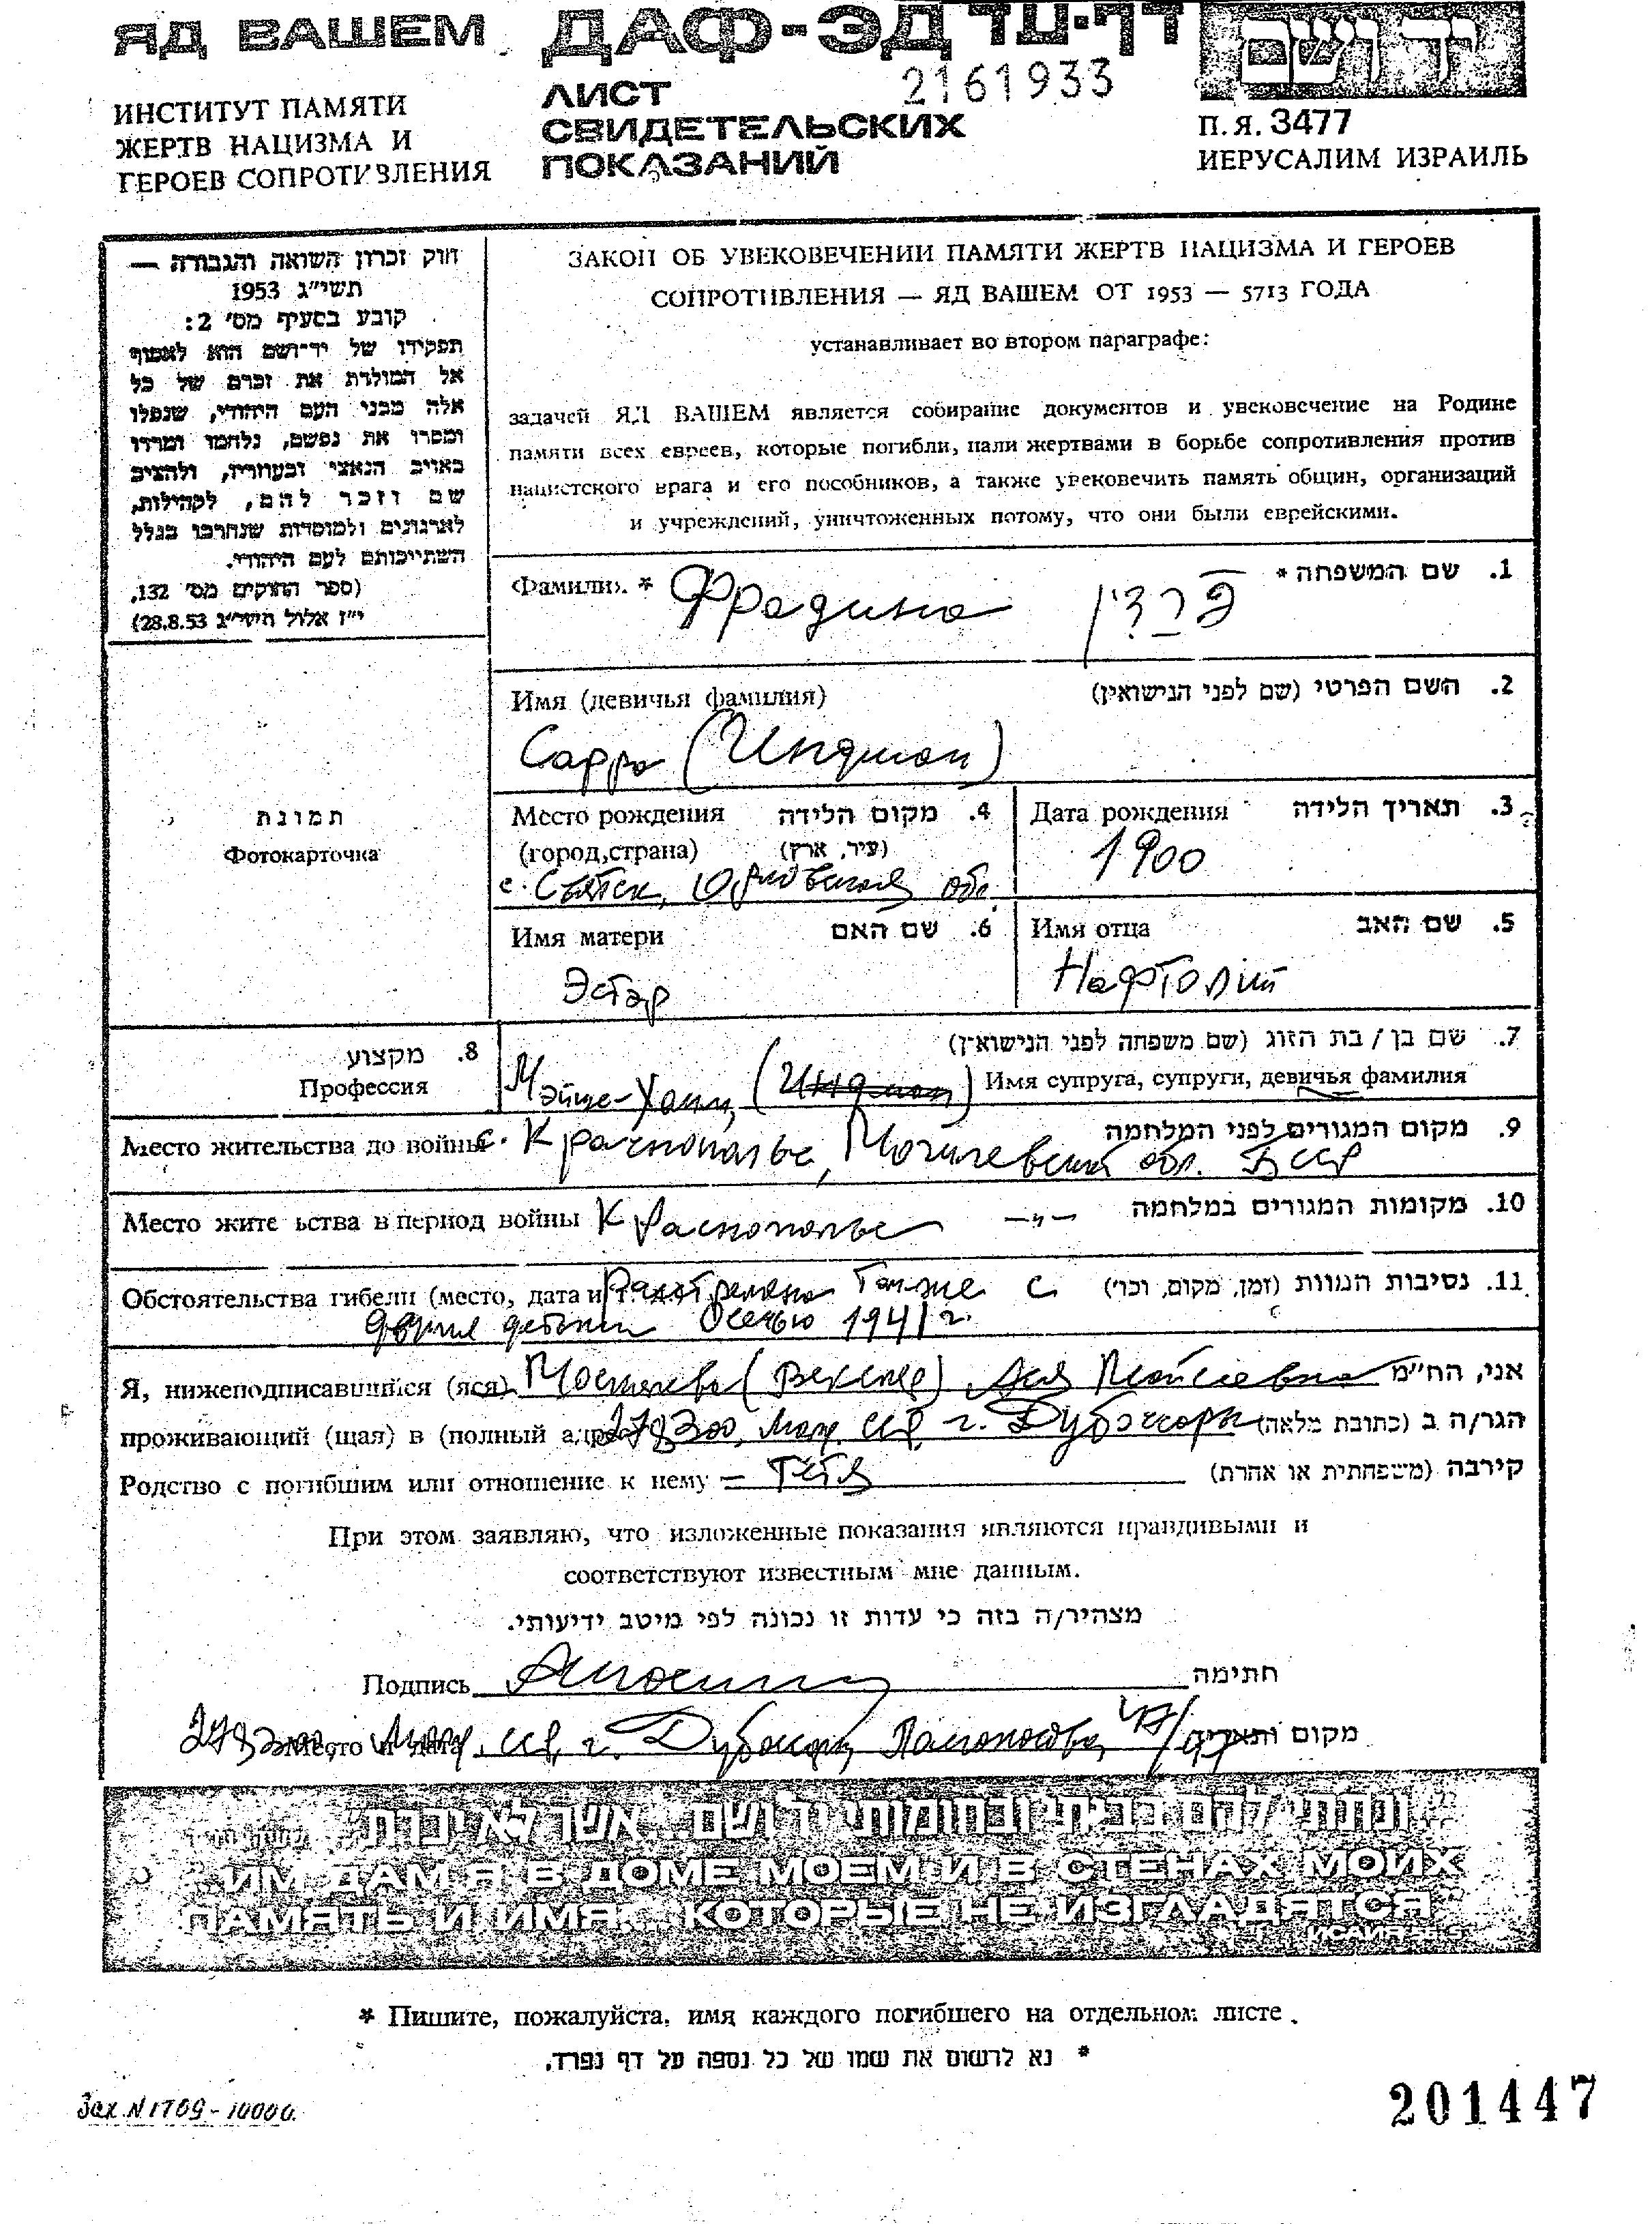 ЯД ВАШЕМ
ДАФ-ЭД דף-עד
יד ושם
2161933
ИНСТИТУТ ПАМЯТИ
ЖЕРТВ НАЦИЗМА И
ГЕРОЕВ СОПРОТИВЛЕНИЯ
ЛИСТ
СВИДЕТЕЛЬСКИХ
ПОКАЗАНИЙ
П.Я. 3477
ИЕРУСАЛИМ ИЗРАИЛЬ
חוק זכרון השואה והגבורה —
תשי״ג 1953
קובע בסעיף מס׳ 2:
תפקידו של יד־ושם הוא לאסוף
אל המולדת את זכרם של כל
אלה מבני העם היהודי, שנפלו
ומסרו את נפשם, נלחמו ומרדו
באויב הנאצי ובעוזריו, ולהציב
שם וזכר להם, לקהילות,
לארגונים ולמוסדות שנחרבו בגלל
השתייכותם לעם היהודי.
(ספר החוקים מס׳ 132,
י״ז אלול תשי״ג 28.8.53)
ЗАКОН ОБ УВЕКОВЕЧЕНИИ ПАМЯТИ ЖЕРТВ НАЦИЗМА И ГЕРОЕВ
СОПРОТИВЛЕНИЯ — ЯД ВАШЕМ ОТ 1953 — 5713 ГОДА
устанавливает во втором параграфе:
задачей ЯД ВАШЕМ является собирание документов и увековечение на Родине
памяти всех евреев, которые погибли, пали жертвами в борьбе сопротивления против
нацистского врага и его пособников, а также увековечить память общин, организаций
и учреждений, уничтоженных потому, что они были еврейскими.
Фамилия * Фрадина פרדין 1. שם המשפחה *
Имя (девичья фамилия) 2. השם הפרטי (שם לפני הנישואין)
Сарра (Индман)
תמונת
Фотокарточка
Место рождения 4. מקום הלידה
(город,страна) (עיר, ארץ)
с. Святск, Орловская обл.
Дата рождения 3. תאריך הלידה
1900
Имя матери 6. שם האם
Эстер
Имя отца 5. שם האב
Нафтолий
8. מקצוע
Профессия
7. שם בן / בת הזוג (שם משפחה לפני הנישואין)
Мэйше-Хаим, (Индман) Имя супруга, супруги, девичья фамилия
9. מקום המגורים לפני המלחמה
Место жительства до войны с. Краснополье, Могилевская обл. БССР
Место жите ьства в период войны Краснополье —"— 10. מקומות המגורים במלחמה
Обстоятельства гибели (место, дата и т. Расстреляна также с 11. נסיבות המוות (זמן, מקום, וכו׳)
двумя детьми Осенью 1941 г.
Я, нижеподписавшийся (яся) (Векслер) Ася אני, הח״מ
проживающий (щая) в (полный адрес 278300, Мол. ССР, г. Дубоссары הגר/ה ב (כתובת מלאה)
Родство с погибшим или отношение к нему — Тётя קירבה (משפחתית או אחרת)
При этом заявляю, что изложенные показания являются правдивыми и
соответствуют известным мне данным.
מצהיר/ה בזה כי עדות זו נכונה לפי מיטב ידיעותי.
Подпись חתימה
278300, Место и дата Мол. ССР, г. Дубоссары, Ломоносова, 47/ מקום ותאריך
״ונתתי להם בביתי ובחומותי יד ושם... אשר לא יכרת״
"...ИМ ДАМ Я В ДОМЕ МОЕМ И В СТЕНАХ МОИХ
ПАМЯТЬ И ИМЯ... КОТОРЫЕ НЕ ИЗГЛАДЯТСЯ"
ИСАИЯ 56.5
* Пишите, пожалуйста, имя каждого погибшего на отдельном листе .
* נא לרשום את שמו של כל נספה על דף נפרד.
Зак. N 1709 - 10000.
201447